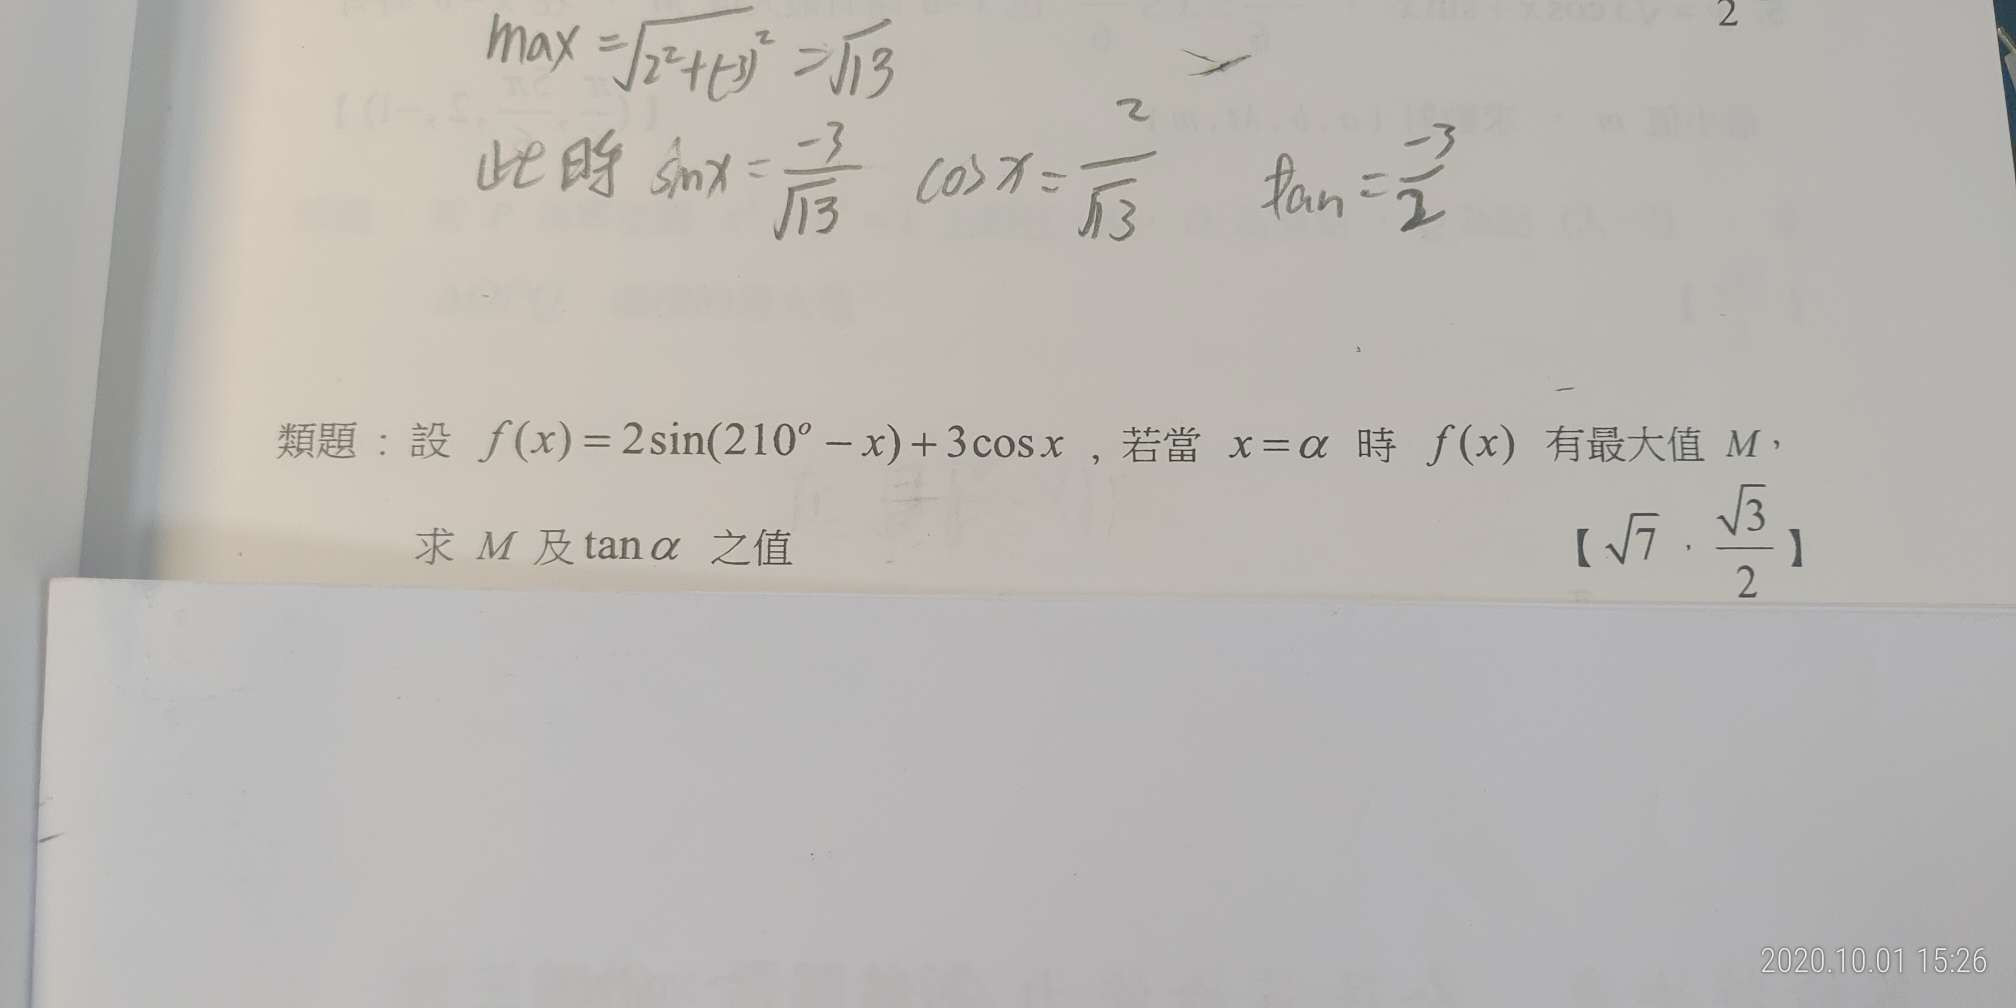 2
max = √(2²+(-3)²) = √13
此時 sinx = -3/√13 cosx = 2/√13 tan = -3/2
類題：設 f(x) = 2sin(210° − x) + 3cos x ，若當 x = α 時 f(x) 有最大值 M，
求 M 及 tan α 之值 【√7，√3/2】
2020.10.01 15:26